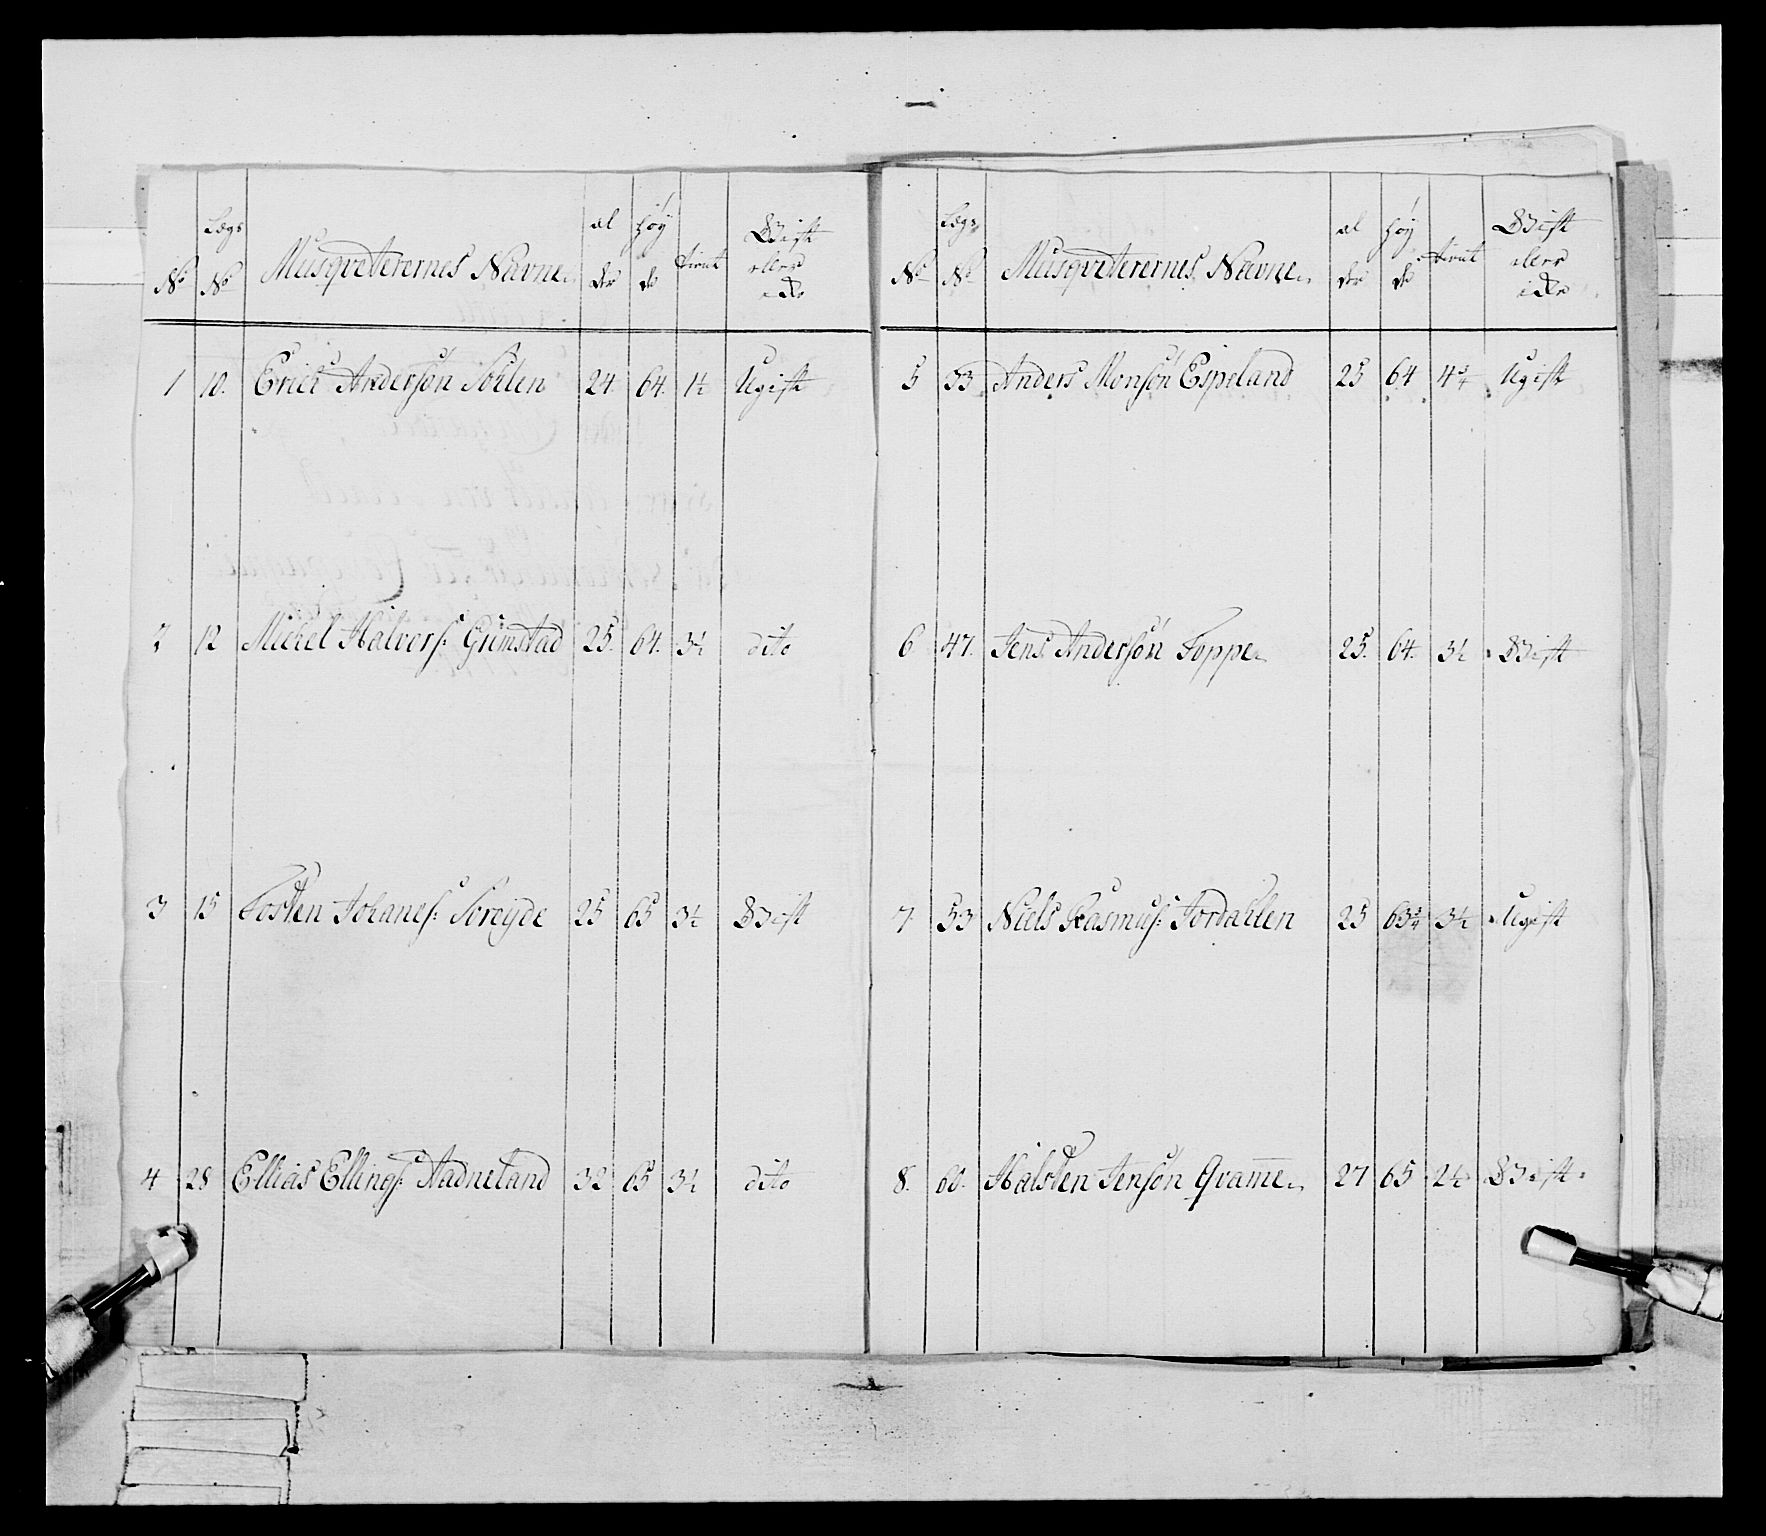 No Legs No Musqveterernes Navne al der Høy de tient Gift eller ickr
1 10. Erick Andersøn Solen 24 64. 1½ Ugift
2 12 Mickel Halvors: Grimstad 25. 64. 3½ dito
3 15 Tosten Johanes: Søreyde 25 65 3½ Gift
4 28 Ellias Ellings: Aadneland 32 65 3½ dito
No Legs No Musqveterernes Navne al der Høy de tient Gift eller ickr
5 33 Anders Monsøn Espeland 25 64 4¾ Ugift
6 47. Jens Andersøn Toppe 25. 64. 3½ Gift
7. 53 Niels Rasmus: Jordahlen 25 63¾ 3½ Ugift
8. 60. Halsten Jensøn Qvamme 27 65 2½ Gift